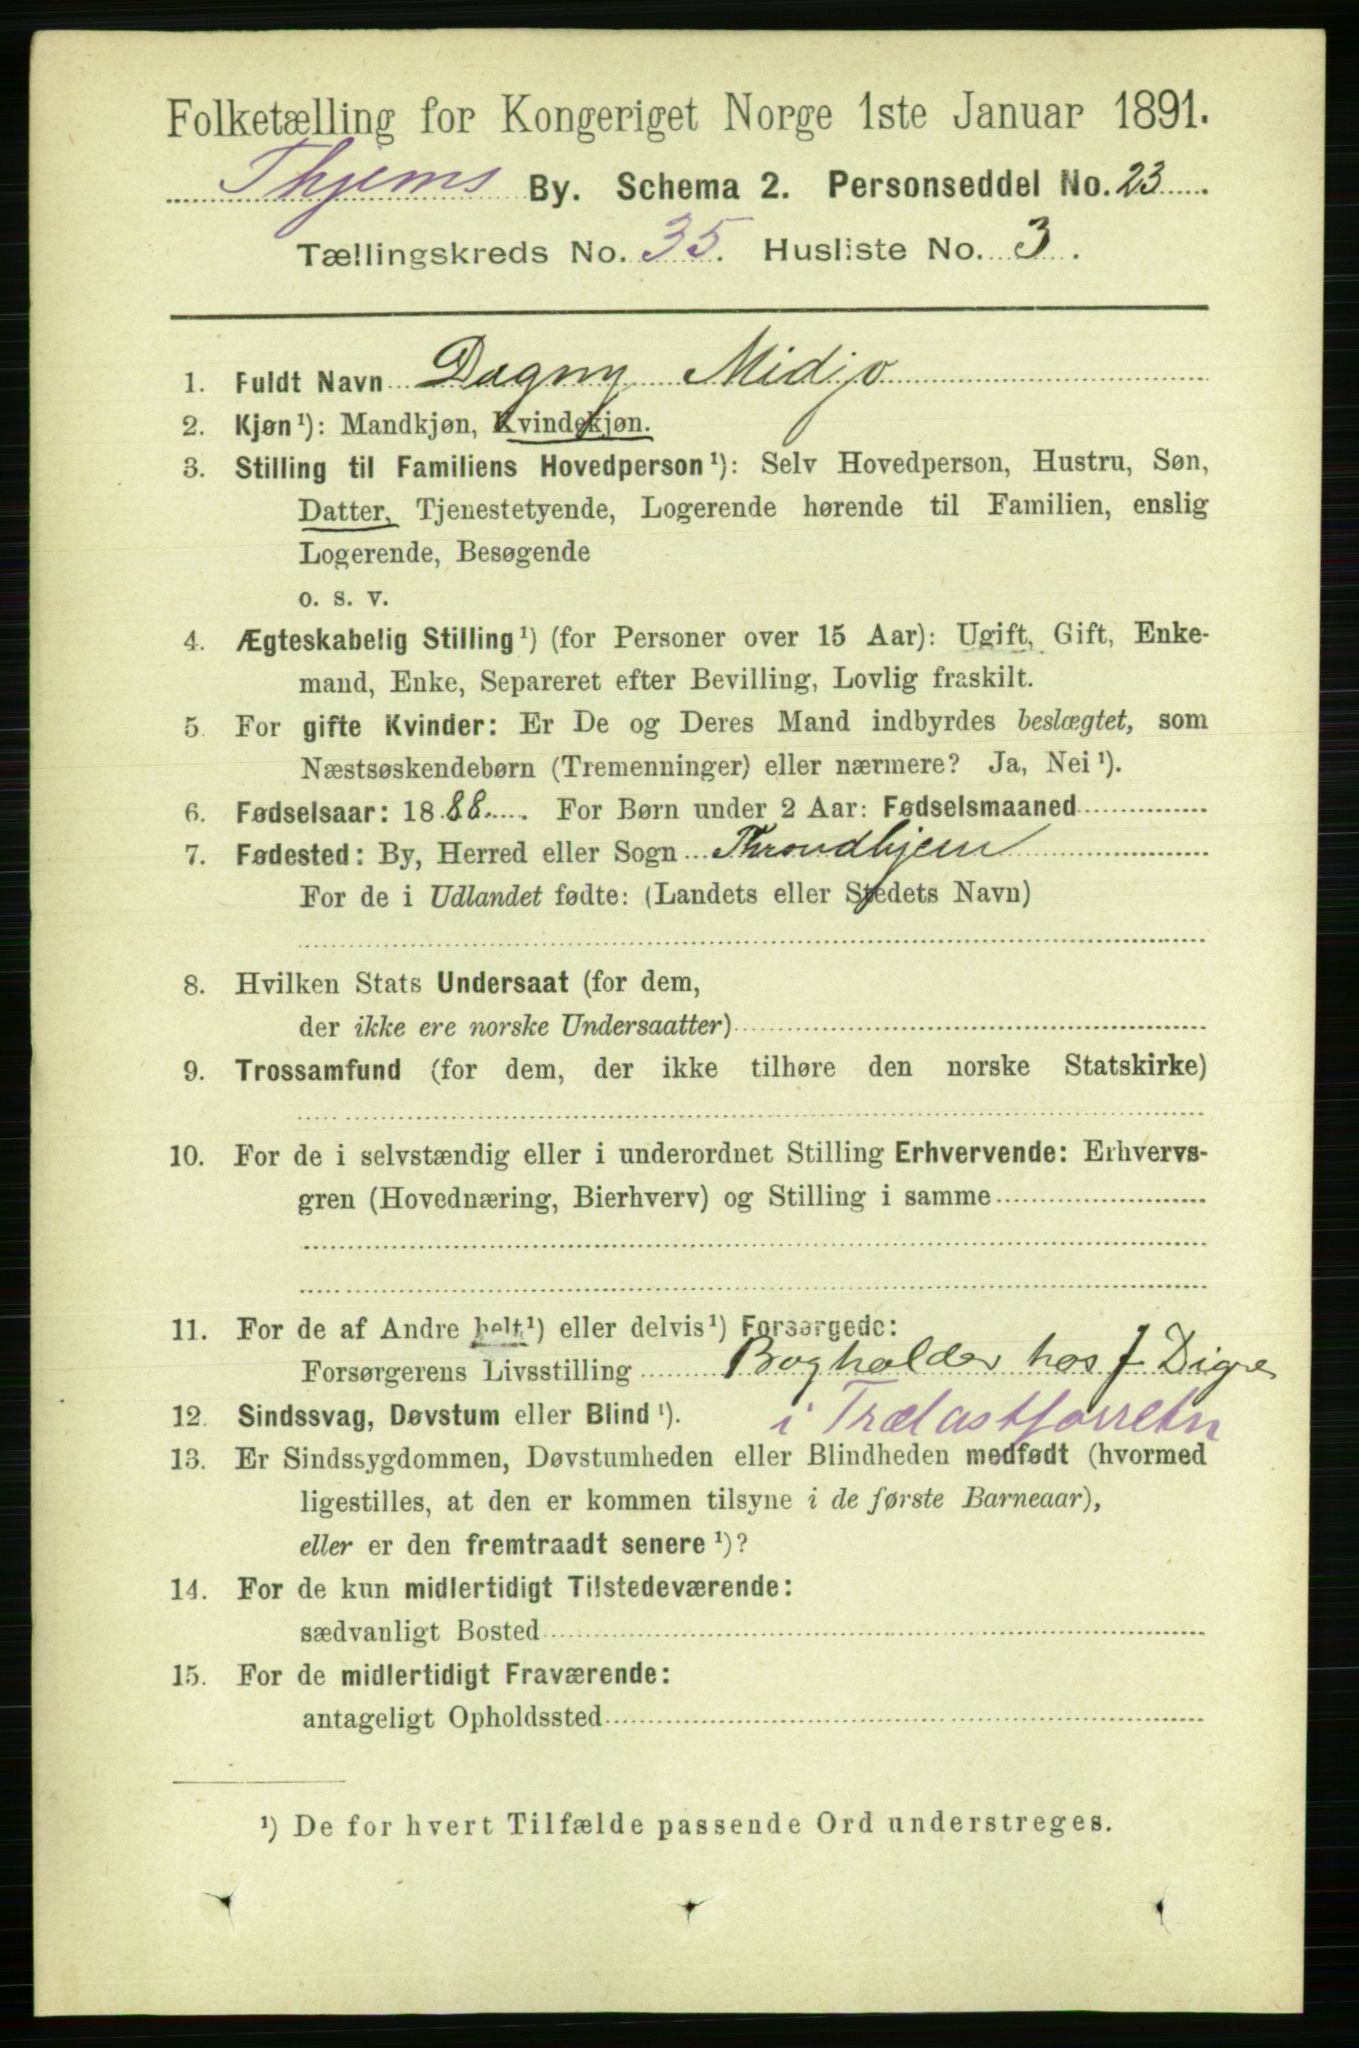 Folketælling for Kongeriget Norge 1ste Januar 1891.
Thjems By. Schema 2. Personseddel No. 23
Tællingskreds No. 35. Husliste No. 3.
1. Fuldt Navn Dagny Midjo
2. Kjøn¹): Mandkjøn, Kvindekjøn.
3. Stilling til Familiens Hovedperson¹): Selv Hovedperson, Hustru, Søn,
Datter, Tjenestetyende, Logerende hørende til Familien, enslig
Logerende, Besøgende
o. s. v.
4. Ægteskabelig Stilling¹) (for Personer over 15 Aar): Ugift, Gift, Enke-
mand, Enke, Separeret efter Bevilling, Lovlig fraskilt.
5. For gifte Kvinder: Er De og Deres Mand indbyrdes beslægtet, som
Næstsøskendebørn (Tremenninger) eller nærmere? Ja, Nei¹).
6. Fødselsaar: 1888. For Børn under 2 Aar: Fødselsmaaned
7. Fødested: By, Herred eller Sogn Throndhjem
For de i Udlandet fødte: (Landets eller Stedets Navn)
8. Hvilken Stats Undersaat (for dem,
der ikke ere norske Undersaatter)
9. Trossamfund (for dem, der ikke tilhøre den norske Statskirke)
10. For de i selvstændig eller i underordnet Stilling Erhvervende: Erhvervs-
gren (Hovednæring, Bierhverv) og Stilling i samme
11. For de af Andre helt¹) eller delvis¹) Forsørgede:
Forsørgerens Livsstilling Bogholder hos J Digre
12. Sindssvag, Døvstum eller Blind¹). i Trælastforretn
13. Er Sindssygdommen, Døvstumheden eller Blindheden medfødt (hvormed
ligestilles, at den er kommen tilsyne i de første Barneaar),
eller er den fremtraadt senere¹)?
14. For de kun midlertidigt Tilstedeværende:
sædvanligt Bosted
15. For de midlertidigt Fraværende:
antageligt Opholdssted
¹) De for hvert Tilfælde passende Ord understreges.